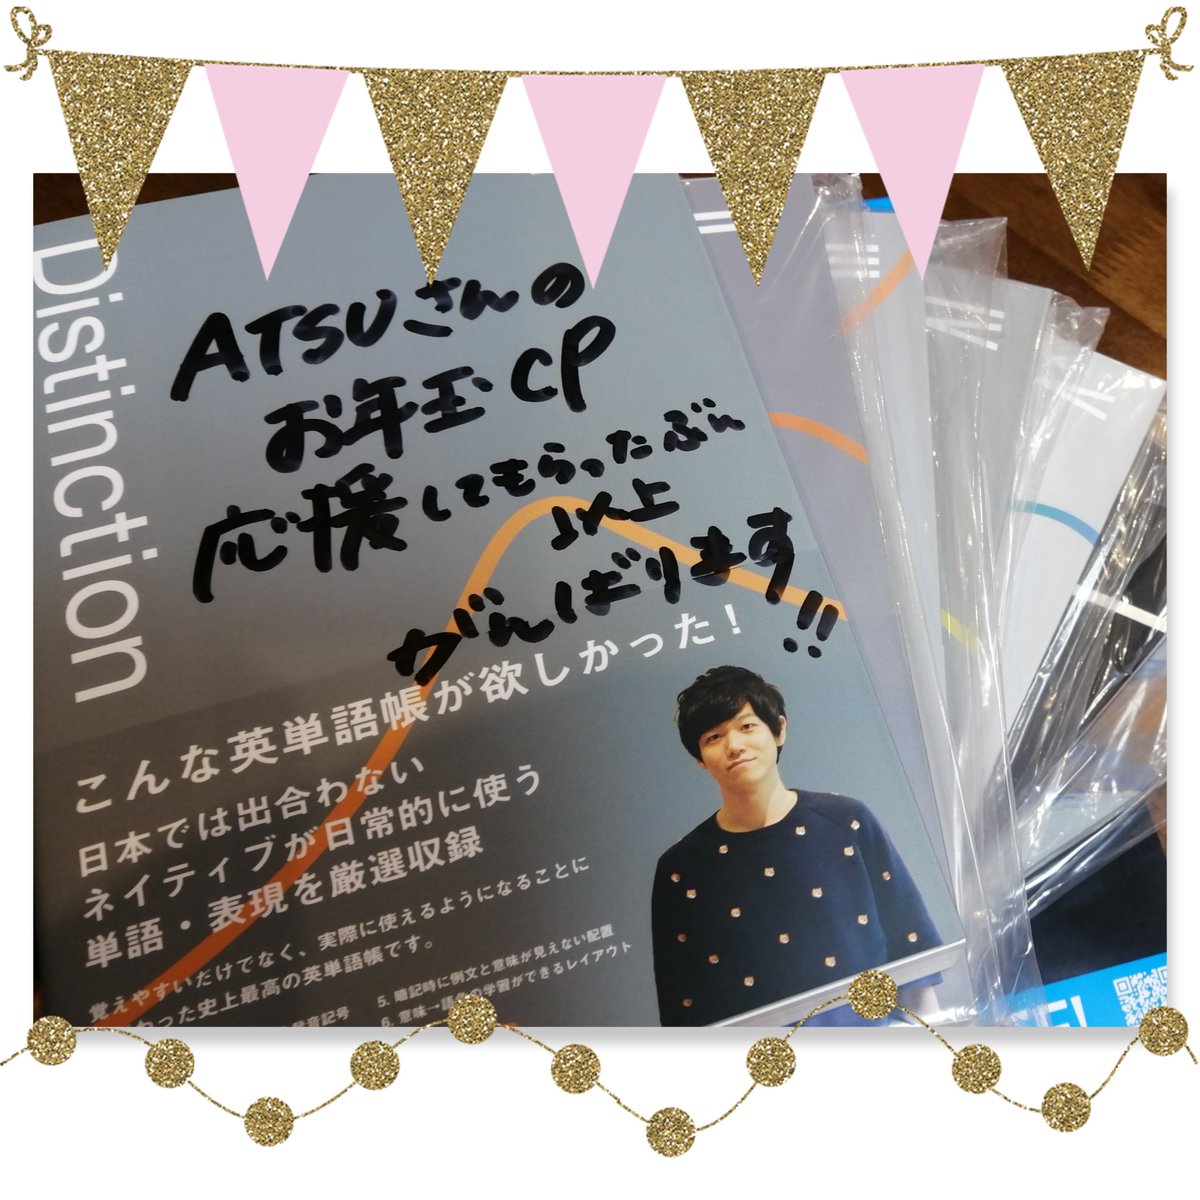 Distinction
ATSUさんの
お年玉CP
応援してもらったぶん
以上
がんばります!!
こんな英単語帳が欲しかった!
日本では出合わない
ネイティブが日常的に使う
単語・表現を厳選収録
覚えやすいだけでなく、実際に使えるようになることに
った史上最高の英単語帳です。
音記号
5. 暗記時に例文と意味が見えない配置
6. 意味→語の学習ができるレイアウト
II
III
IV
V